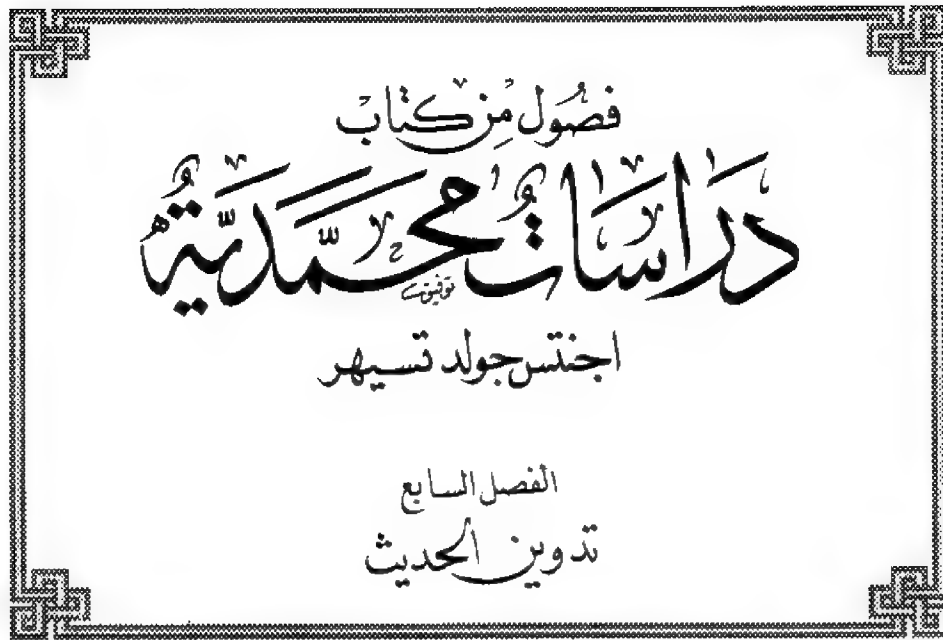 فصُول مِن كتاب
دَراسَاتٌ محمَّديَّةٌ
توفيق
اجنتس جولد تسيهر
الفصل السابع
تدوين الحديث